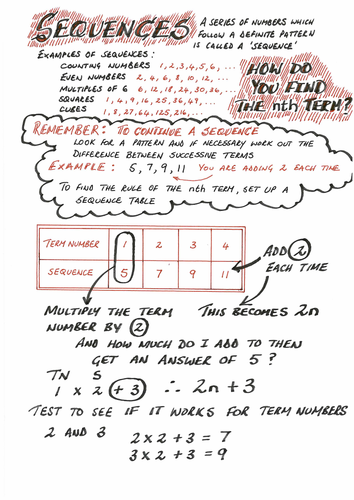 SEQUENCES
A SERIES OF NUMBERS WHICH
FOLLOW A DEFINITE PATTERN
IS CALLED A 'SEQUENCE'
EXAMPLES OF SEQUENCES:
COUNTING NUMBERS 1,2,3,4,5,6,...
EVEN NUMBERS 2,4,6,8,10,12,...
MULTIPLES OF 6 6,12,18,24,30,36,...
SQUARES 1,4,9,16,25,36,49,...
CUBES 1,8,27,64,125,216,...
HOW DO
YOU FIND
THE nth TERM?
REMEMBER: TO CONTINUE A SEQUENCE
LOOK FOR A PATTERN AND IF NECESSARY WORK OUT THE
DIFFERENCE BETWEEN SUCCESSIVE TERMS
EXAMPLE: 5, 7, 9, 11 YOU ARE ADDING 2 EACH TIME
TO FIND THE RULE OF THE nth TERM, SET UP A
SEQUENCE TABLE
TERM NUMBER 1 2 3 4
SEQUENCE 5 7 9 11
ADD 2
EACH TIME
MULTIPLY THE TERM
NUMBER BY 2
THIS BECOMES 2n
AND HOW MUCH DO I ADD TO THEN
GET AN ANSWER OF 5?
TN S
1 x 2 + 3 ∴ 2n + 3
TEST TO SEE IF IT WORKS FOR TERM NUMBERS
2 AND 3
2 x 2 + 3 = 7
3 x 2 + 3 = 9